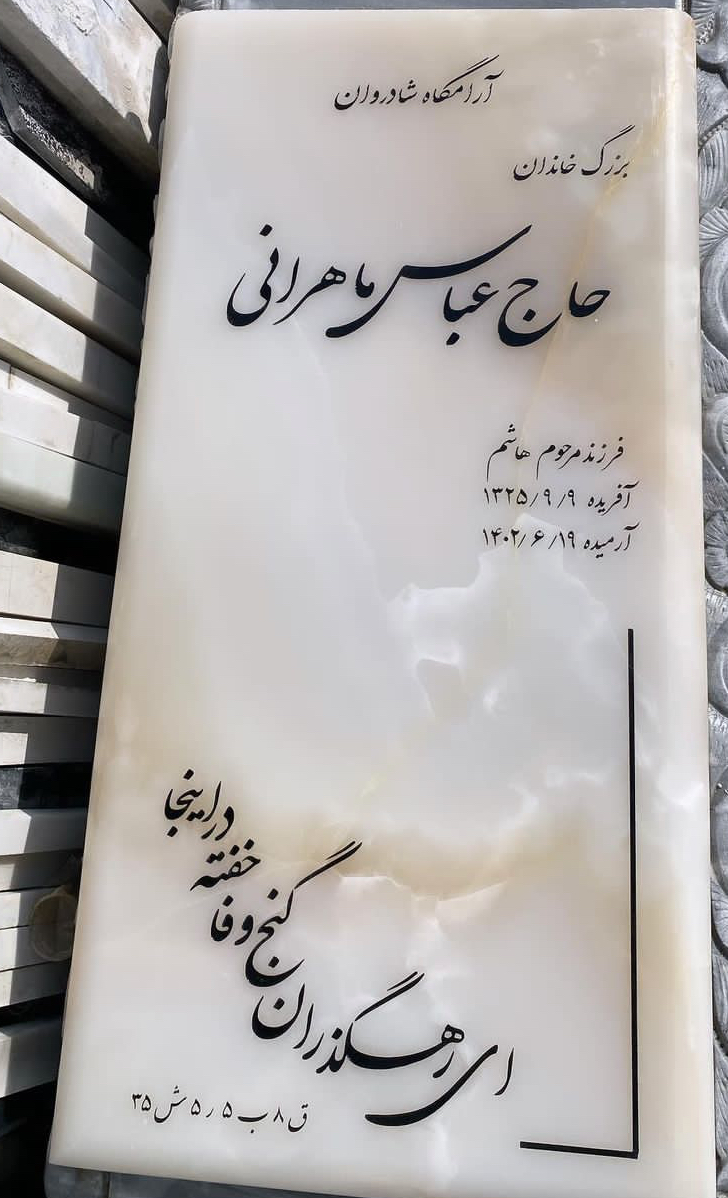 آرامگاه شادروان
بزرگ خاندان
حاج عباس ماهرانی
فرزند مرحوم هاشم
آفریده ۱۳۲۵/۹/۹
آرمیده ۱۴۰۲/۶/۱۹
ای رهگذران گنج وفا خفته در اینجا
ق ۸ ب ۵ ر ۵ ش ۳۵